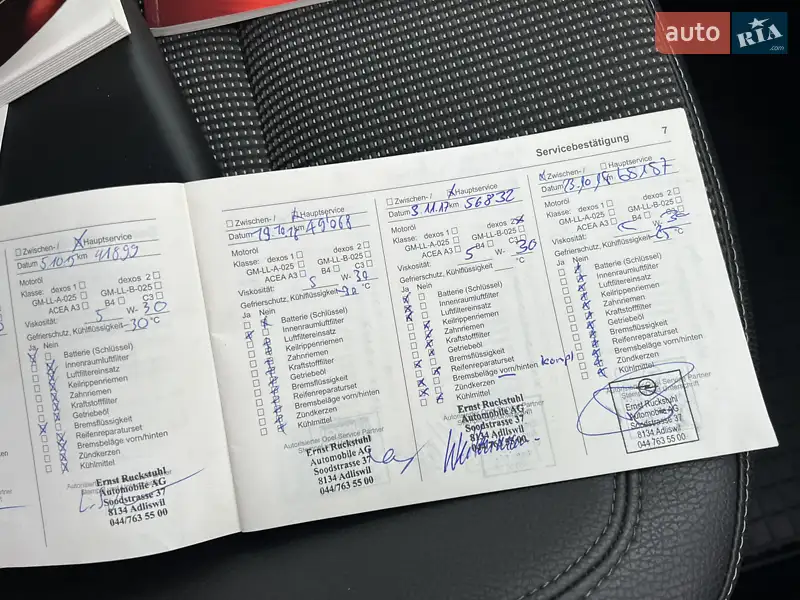 auto RIA.com
Servicebestätigung 7
Zwischen-/ Hauptservice
Datum 5.10.15 km 41899
Motoröl
Klasse: dexos 1 dexos 2
GM-LL-A-025 GM-LL-B-025
ACEA A3 B4 C3
Viskosität: 5 W- 30
Gefrierschutz, Kühlflüssigkeit -30 °C
Ja Nein
Batterie (Schlüssel)
Innenraumluftfilter
Luftfiltereinsatz
Keilrippenriemen
Zahnriemen
Kraftstofffilter
Getriebeöl
Bremsflüssigkeit
Reifenreparaturset
Bremsbeläge vorn/hinten
Zündkerzen
Kühlmittel
Ernst Ruckstuhl
Automobile AG
Soodstrasse 37
8134 Adliswil
044/763 55 00
Zwischen-/ Hauptservice
Datum 19.10.16 km 49068
Motoröl
Klasse: dexos 1 dexos 2
GM-LL-A-025 GM-LL-B-025
ACEA A3 B4 C3
Viskosität: 5 W- 30
Gefrierschutz, Kühlflüssigkeit °C
Ja Nein
Batterie (Schlüssel)
Innenraumluftfilter
Luftfiltereinsatz
Keilrippenriemen
Zahnriemen
Kraftstofffilter
Getriebeöl
Bremsflüssigkeit
Reifenreparaturset
Bremsbeläge vorn/hinten
Zündkerzen
Kühlmittel
Autorisierter Opel Service Partner
Ernst Ruckstuhl
Automobile AG
Soodstrasse 37
8134 Adliswil
044/763 55 00
Zwischen-/ Hauptservice
Datum 3.11.17 km 56832
Motoröl
Klasse: dexos 1 dexos 2
GM-LL-A-025 GM-LL-B-025
ACEA A3 B4 C3
Viskosität: 5 W- 30
Gefrierschutz, Kühlflüssigkeit °C
Ja Nein
Batterie (Schlüssel)
Innenraumluftfilter
Luftfiltereinsatz
Keilrippenriemen
Zahnriemen
Kraftstofffilter
Getriebeöl
Bremsflüssigkeit
Reifenreparaturset
Bremsbeläge vorn/hinten kompl
Zündkerzen
Kühlmittel
Ernst Ruckstuhl
Automobile AG
Soodstrasse 37
8134 Adliswil
044/763 55 00
Zwischen-/ Hauptservice
Datum 23.10.18 km 68187
Motoröl
Klasse: dexos 1 dexos 2
GM-LL-A-025 GM-LL-B-025
ACEA A3 B4 C3
Viskosität: 5 W- 30
Gefrierschutz, Kühlflüssigkeit °C
Ja Nein
Batterie (Schlüssel)
Innenraumluftfilter
Luftfiltereinsatz
Keilrippenriemen
Zahnriemen
Kraftstofffilter
Getriebeöl
Bremsflüssigkeit
Reifenreparaturset
Bremsbeläge vorn/hinten
Zündkerzen
Kühlmittel
Ernst Ruckstuhl
Automobile AG
Soodstrasse 37
8134 Adliswil
044 763 55 00